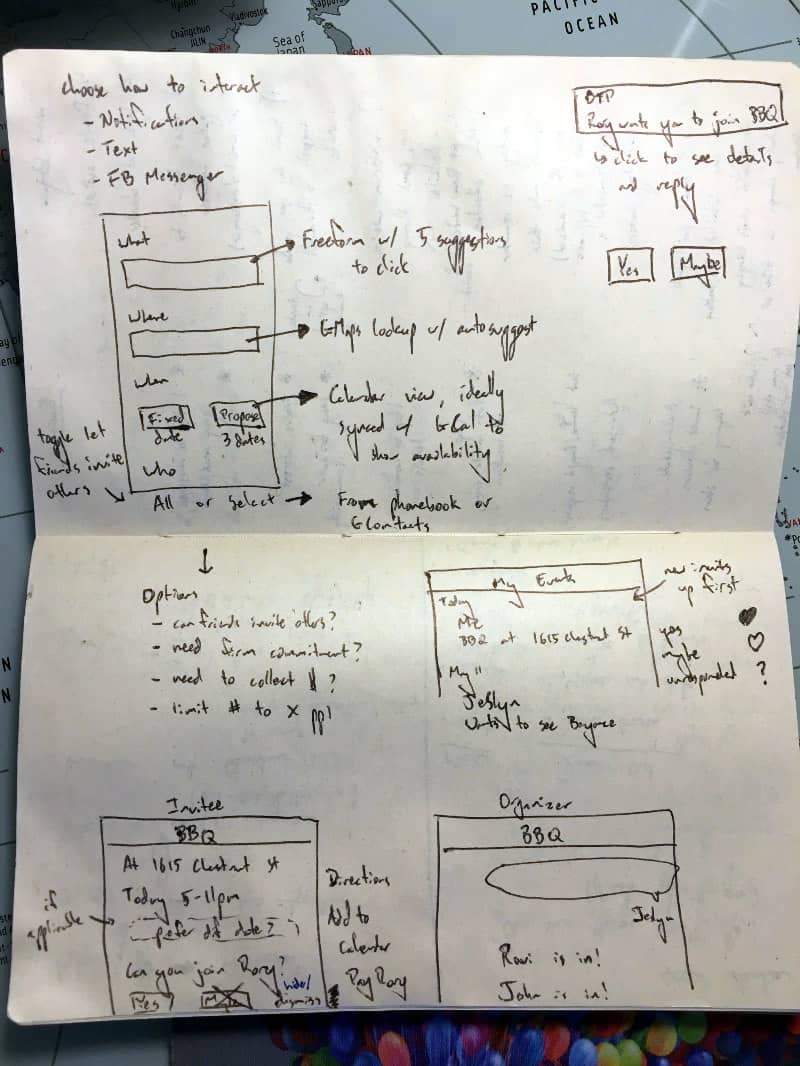 Vladivostok
Changchun
JILIN
Sea of
Japan
PACIFIC
OCEAN
choose how to interact
- Notifications
- Text
- FB Messenger
BTP
Rory wants you to join BBQ
↳ click to see details
and reply
Yes
Maybe
What
→ Freeform w/ 5 suggestions
to click
Where
→ GMaps lookup w/ autosuggest
When
Fixed
date
Propose
3 dates
→ Calendar view, ideally
synced w/ GCal to
show availability
Who
toggle let
friends invite
others
All or Select → From phonebook or
GContacts
Options
- can friends invite others?
- need firm commitment?
- need to collect $?
- limit # to X ppl
My Events
new invites
up first
Today
BBQ at 1615 Chestnut St
May 11
Jeslyn
to see Beyonce
yes ♥
maybe ♡
unresponded ?
Invitee
BBQ
At 1615 Chestnut St
Today 5-11pm
prefer dif date?
if
applicable
Can you join Rory?
Yes
Maybe
hide/
dismiss
Directions
Add to
Calendar
Pay Rory
Organizer
BBQ
Jeslyn
Ravi is in!
John is in!